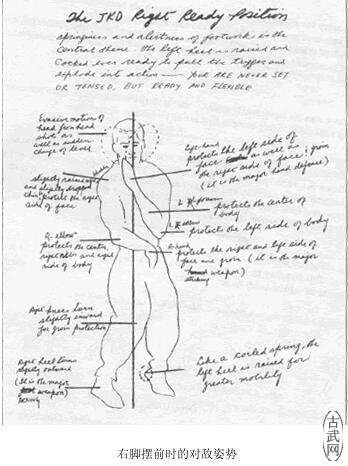 The JKD Right Ready Position
springiness and alertness of footwork is the
central theme. The left heel is raised and
cocked ever ready to pull the trigger and
explode into action — YOU ARE NEVER SET
OR TENSED, BUT READY AND FLEXIBLE
Evasive motion of
head from hand
shots as
well as sudden
change of level
slightly raised
and slightly dropped
chin protect the right
side of face
R. elbow
protects the center,
right ribs and right
side of body
Right knee turn
slightly inward
for groin protection
Right heel turn
slightly outward
(It is the major
weapon)
Left hand
protects the left side of
face as well as
the right side of face; groin
(it is the major hand defense)
L forearm
protects the center of
body
L elbow
protects the left side of body
R. hand
protects the right and left side of
face and groin (it is the major
weapon)
striking
Like a coiled spring, the
left heel is raised for
greater mobility
右脚摆前时的对敌姿势
古武网